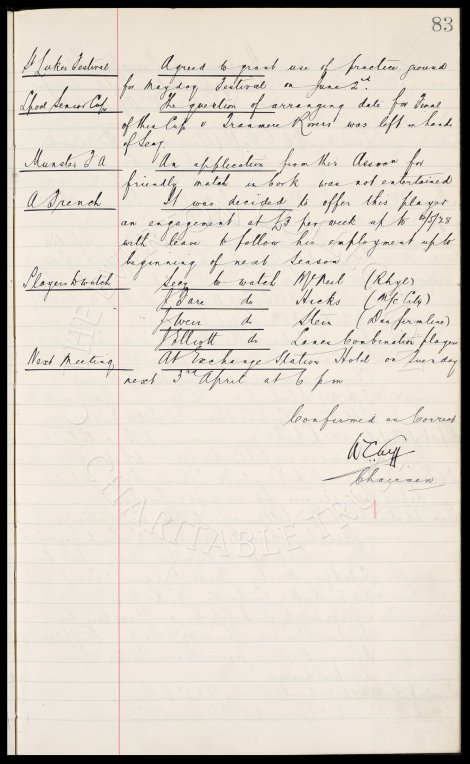 83
St Lukes Festival Agreed to grant use of practice ground
for Mayday Festival on June 2nd.
Lpool Senior Cup The question of arranging date for Final
of this Cup v Tranmere Rovers was left in hands
of Secy.
Munster F A An application from this Assocn for
friendly match in Cork was not entertained
A French It was decided to offer this player
an engagement at £3 per week up to 5/28
with leave to follow his employment up to
beginning of next Season
Players to watch Secy to watch McNeil (Rhyl)
J Bare do Hicks (M/c City)
J Weir do Stein (Dunfermline)
J Elliott do Lancs Combination players
Next Meeting At Exchange Station Hotel on Tuesday
next 3rd April at 6 pm
Confirmed as Correct
W C Cuff
Chairman
CHARITABLE TRUST